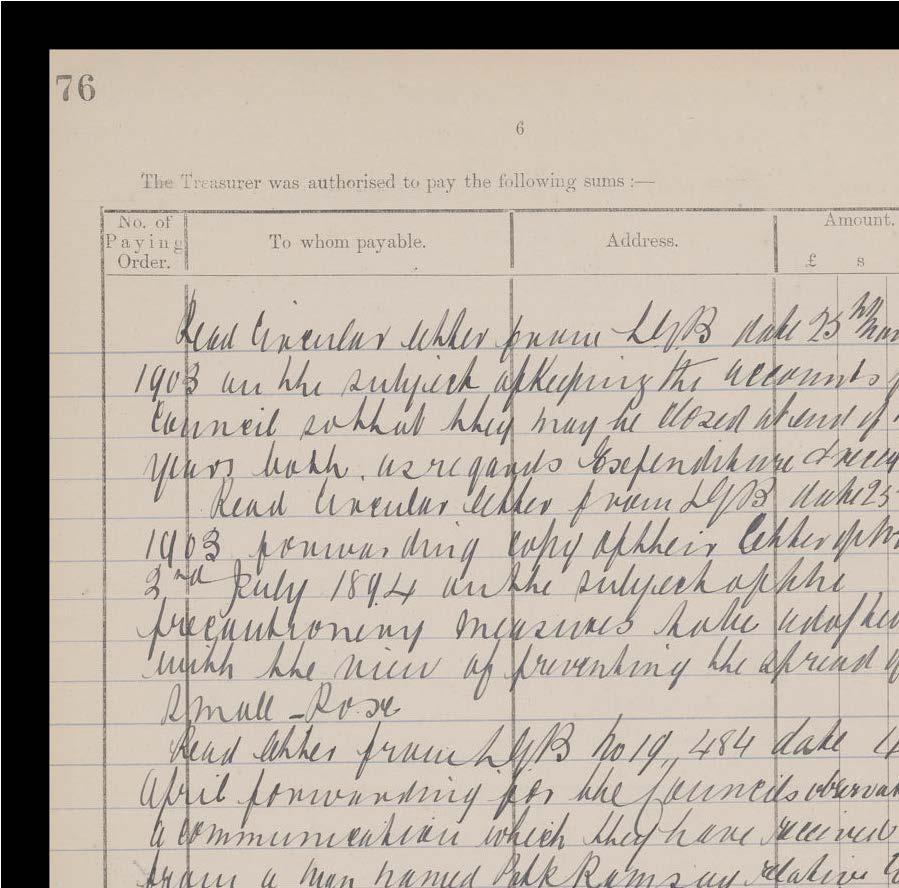 76
6
The Treasurer was authorised to pay the following sums :—
No. of Paying Order. To whom payable. Address. Amount. £ s
Read Circular letter from LGB date 25th Mar
1903 on the subject of Keeping the accounts
Council so that they may be closed at end of
years both as regards Expenditure &
Read Circular letter from LGB date 25
1903 forwarding copy of their letter of
2nd July 1894 on the subject of the
precautionery measures to be adopted
with the view of preventing the spread of
Small-Pox
Read letter from LGB No 19,484 date 4
April forwarding for the Councils
a communication which they have received
from a man named Patk Ramsay relative to